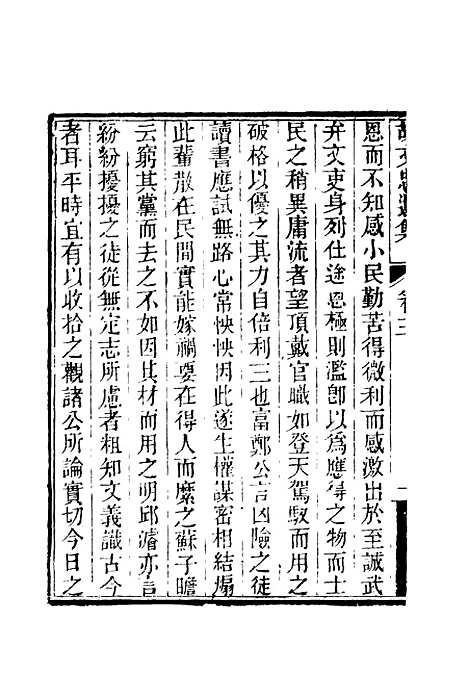 胡文忠遺集
卷十三
恩而不知感小民勤苦得微利而感激出於至誠武
弁文吏身列仕途恩極則濫卽以爲應得之物而士
民之稍異庸流者望頂戴官職如登天駕馭而用之
破格以優之其力自倍利三也富鄭公言凶險之徒
讀書應試無路心常怏怏因此遂生權謀密相結煽
此輩散在民間實能嫁禍要在得人而縻之蘇子瞻
云窮其黨而去之不如因其材而用之明邱濬亦言
紛紛擾擾之徒從無定志所慮者粗知文義識古今
者耳平時宜有以收拾之觀諸公所論實切今日之